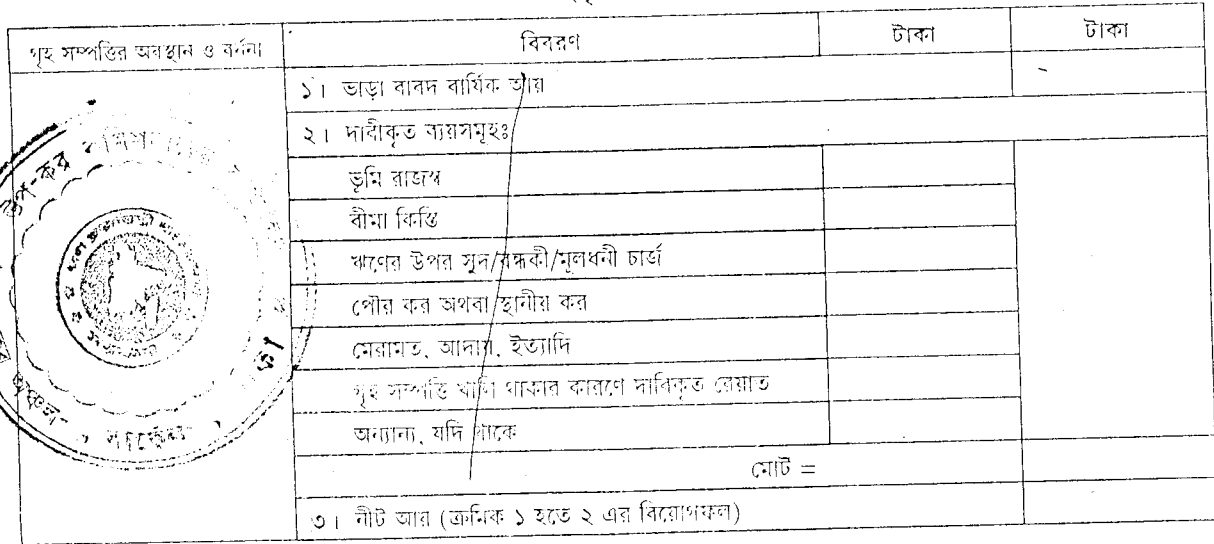 গৃহ সম্পত্তির অবস্থান ও বর্ণনা
বিবরণ
টাকা
টাকা
১। ভাড়া বাবদ বার্ষিক আয়
-
২। দাবীকৃত ব্যয়সমূহঃ
ভূমি রাজস্ব
বীমা কিস্তি
ঋণের উপর সুদ/বন্ধকী/মূলধনী চার্জ
পৌর কর অথবা স্থানীয় কর
মেরামত, আদায়, ইত্যাদি
গৃহ সম্পত্তি খালি থাকার কারণে দাবিকৃত রেয়াত
অন্যান্য, যদি থাকে
মোট =
৩। নীট আয় (ক্রমিক ১ হতে ২ এর বিয়োগফল)
উপ-কর